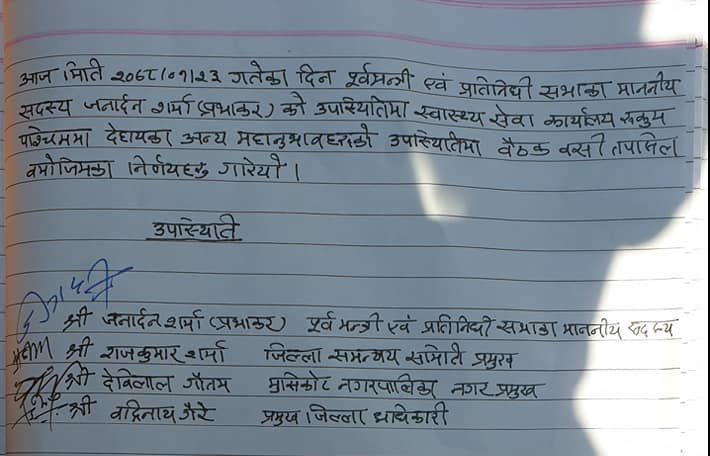 आज मिति २०७८/०१/२३ गतेका दिन पूर्वमन्त्री एवं प्रतिनिधी सभाका माननीय
सदस्य जनार्दन शर्मा (प्रभाकर) को उपास्थितिमा स्वास्थ्य सेवा कार्यालय रुकुम
पश्चिममा देहायका अन्य महानुभावहरुको उपास्थितिमा वैठक वसी तपासिल
वमोजिमका निर्णयहरु गारियो ।
उपास्थिति
श्री जनार्दन शर्मा (प्रभाकर) पूर्व मन्त्री एवं प्रतिनिधी सभाका माननीय सदस्य
श्री राजकुमार शर्मा जिल्ला समन्वय समिति प्रमुख
श्री देविलाल गौतम मुसिकोट नगरपालिका नगर प्रमुख
श्री वद्रिनाथ गैरे प्रमुख जिल्ला आधिकारी